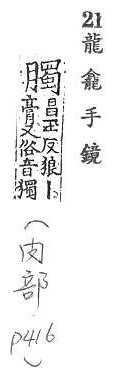 21 龍龕手鏡
臅昌玉反狼丨
膏又俗音獨
（肉部 p416）